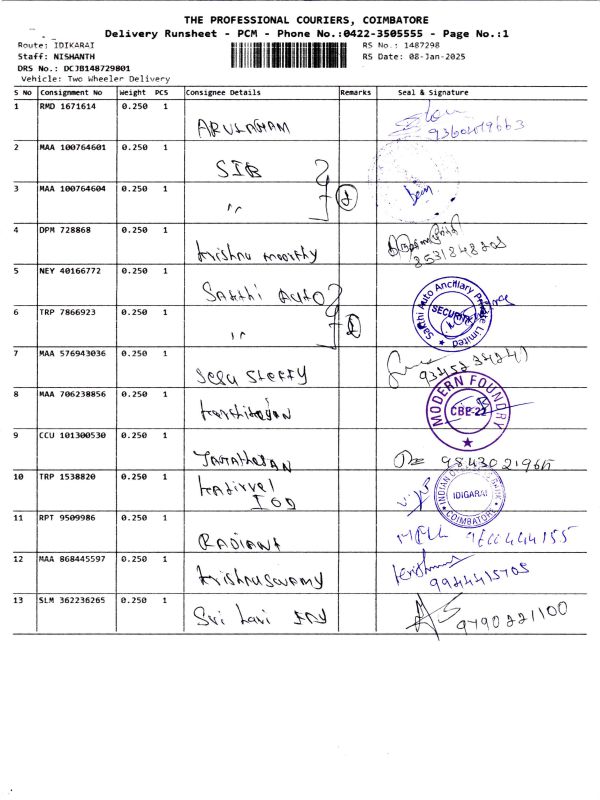 THE PROFESSIONAL COURIERS, COIMBATORE
Delivery Runsheet - PCM - Phone No.:0422-3505555 - Page No.:1
Route: IDIKARAI RS No.: 1487298
Staff: NISHANTH RS Date: 08-Jan-2025
DRS No.: DCJB148729801
Vehicle: Two Wheeler Delivery
S No Consignment No Weight PCS Consignee Details Remarks Seal & Signature
1 RMD 1671614 0.250 1
2 MAA 100764601 0.250 1 SIB
3 MAA 100764604 0.250 1 "
4 DPM 728868 0.250 1 krishna moorthy
5 NEY 40166772 0.250 1 Sakthi Auto
6 TRP 7866923 0.250 1 "
Sakthi Auto Ancillary Private Limited
SECURITY
7 MAA 576943036 0.250 1
8 MAA 706238856 0.250 1
MODERN FOUNDRY
CBE-22
9 CCU 101300530 0.250 1
10 TRP 1538820 0.250 1 kathirvel
IOB
IDIGARAI
COIMBATORE
11 RPT 9509986 0.250 1 RADIANT
12 MAA 868445597 0.250 1 krishnaswamy
13 SLM 362236265 0.250 1 Sri hari 9790221100